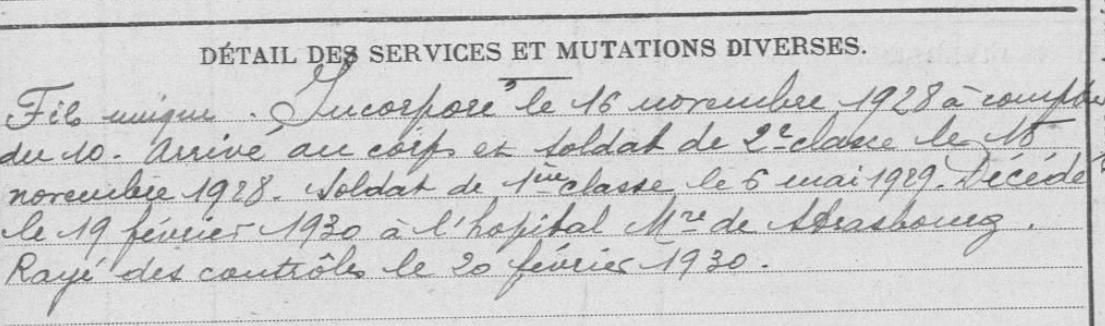 DÉTAIL DES SERVICES ET MUTATIONS DIVERSES.
Fils unique. Incorporé le 16 novembre 1928 à compter
du 10. Arrivé au corps et soldat de 2e classe le 16
novembre 1928. Soldat de 1ère classe le 6 mai 1929. Décédé
le 19 février 1930 à l'hopital Mre de Strasbourg.
Rayé des contrôles le 20 février 1930.